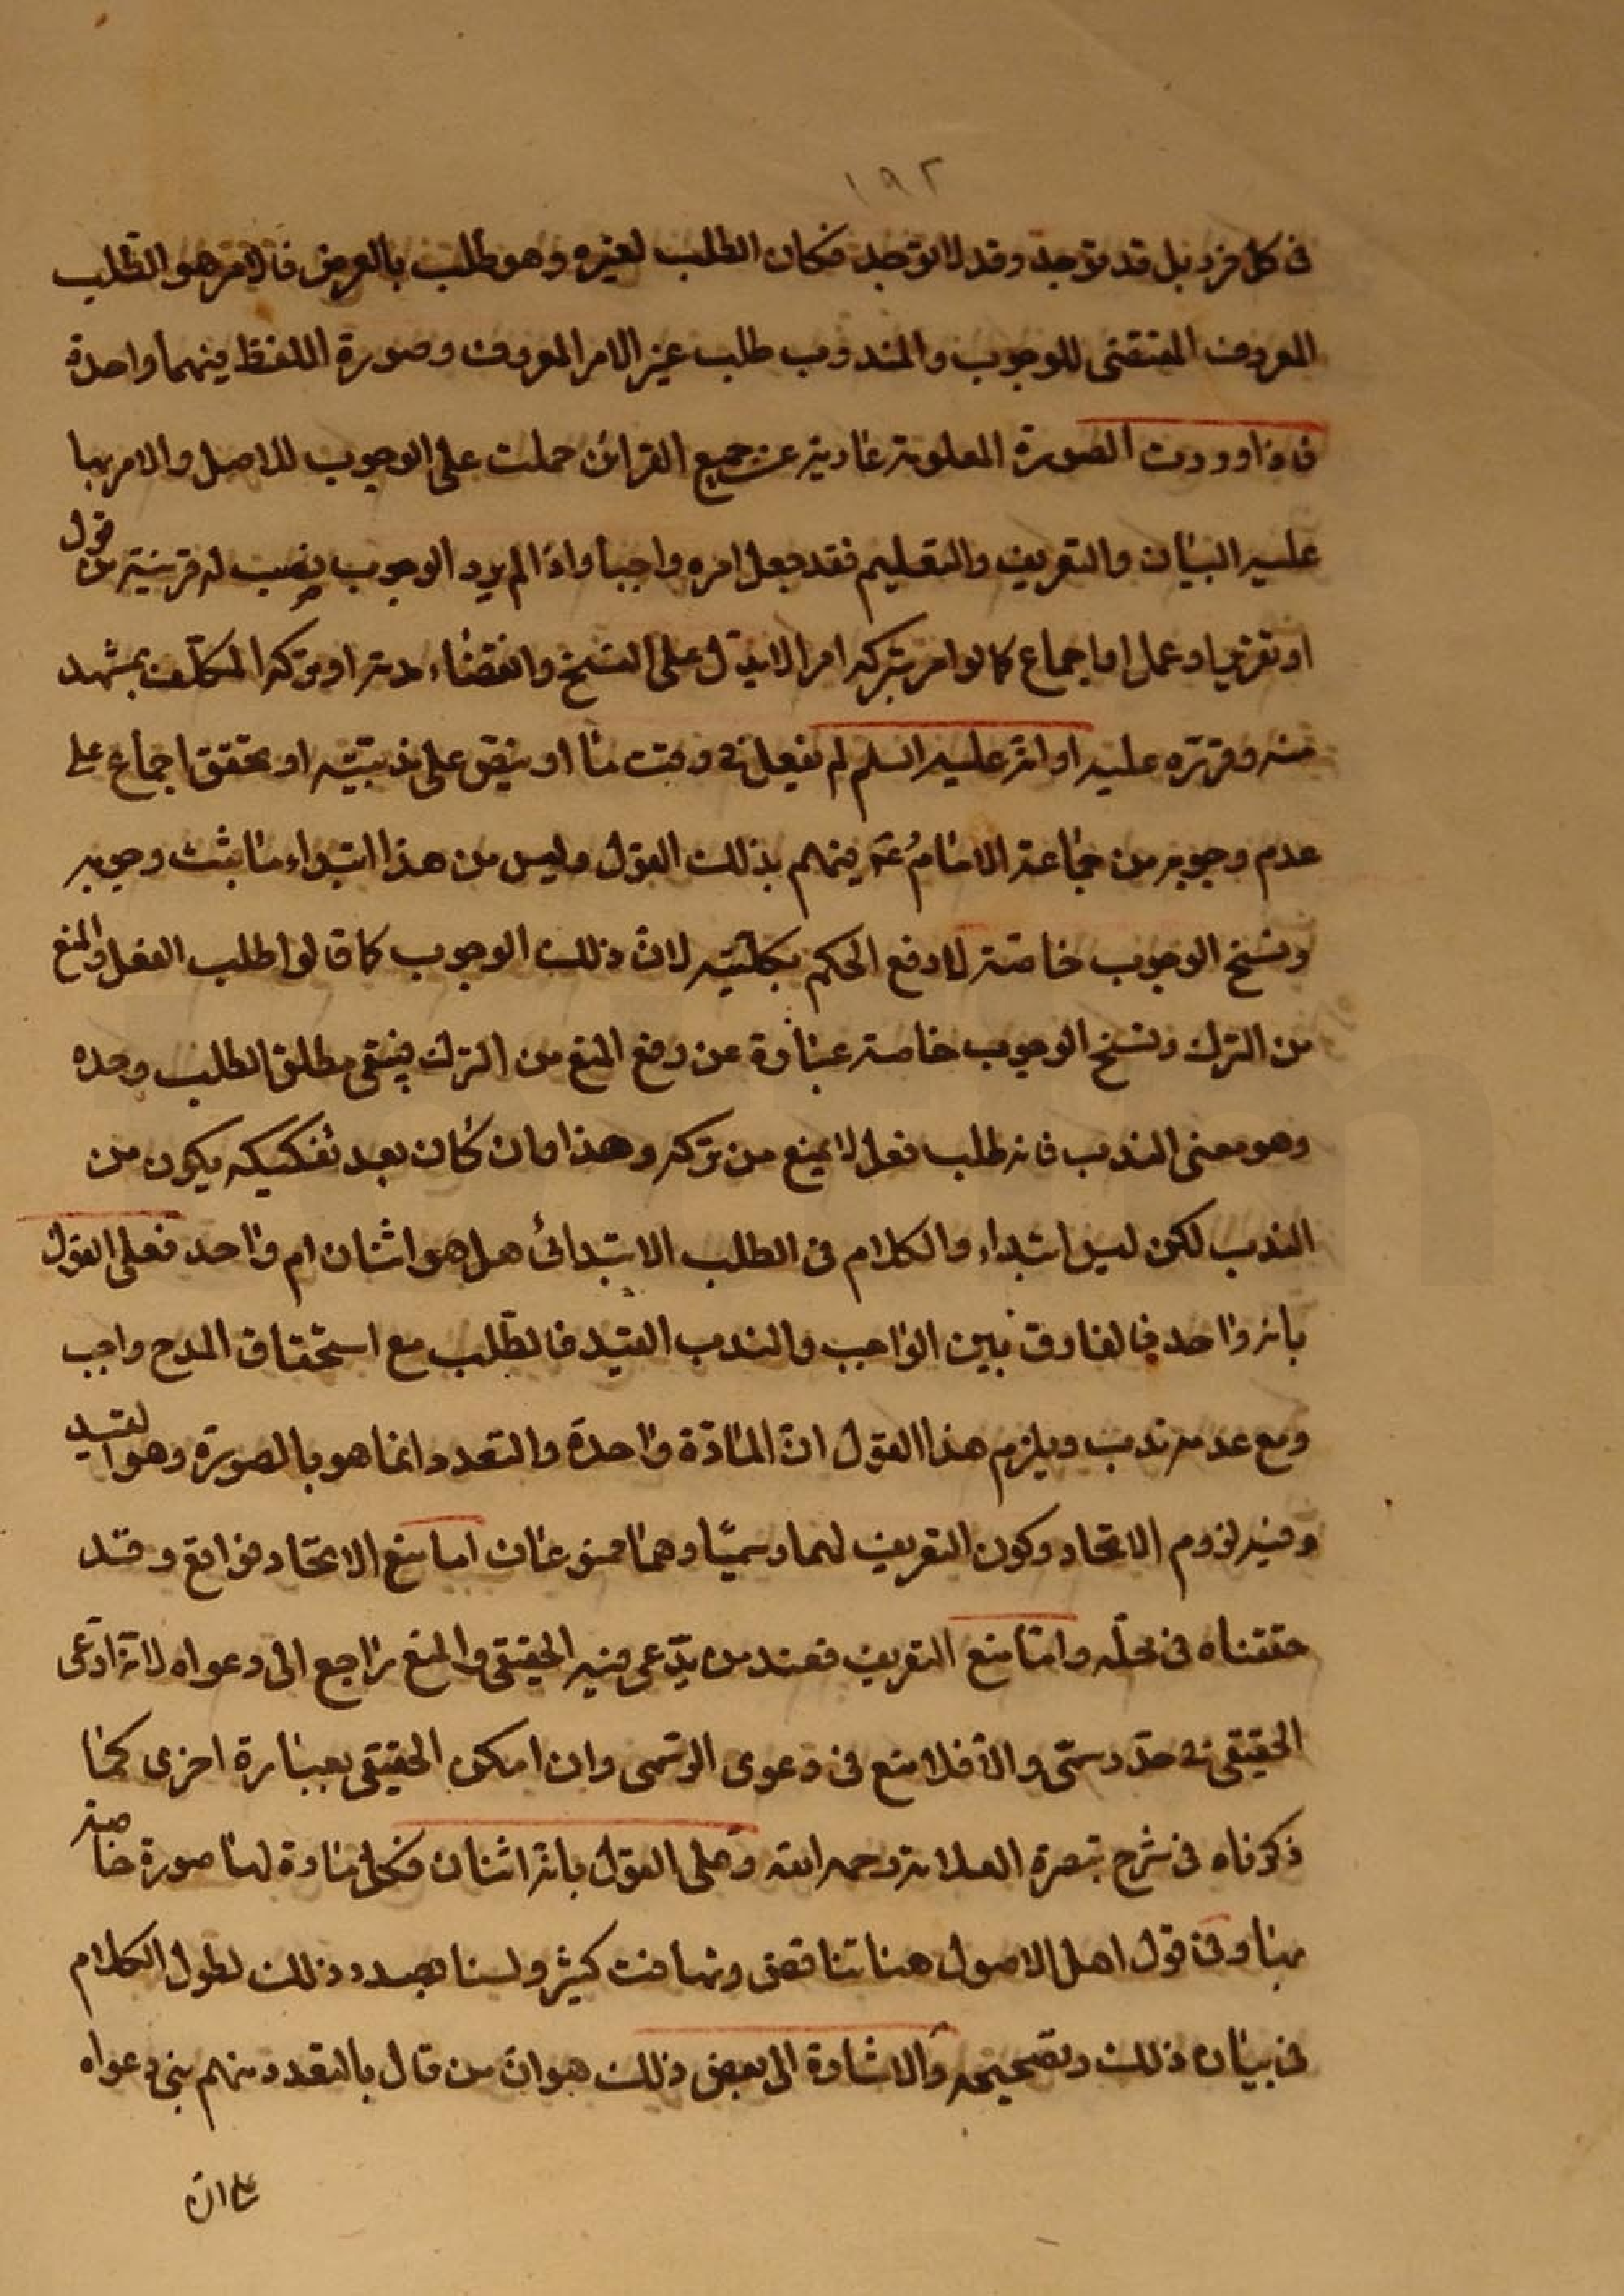 ١٩٢
فى كل فرد بل قد توجد وقد لا توجد فكان الطلب لغيره وهو طلب بالعرض فالامر هو الطلب
المعروف المقتضى للوجوب والمندوب طلب غير الامر المعروف وصورة اللفظ فيهما واحدة
فاذا وردت الصورة المعلومة عارية عن جميع القرائن حملت على الوجوب للاصل والامر بها
عليه البيان والتعريف والتعليم فقد جعل امره واجبا واذا لم يرد الوجوب نصب له قرينة من قول
او تقرير او عمل او اجماع كما لو امر بتركه امرا لا يدل على النسخ وانقضاء مدته او تركه المكلف بمشهد
منه وقرره عليه او انه عليه السلم لم يفعله فى وقت ما او ينص على ندبيته او تحقق اجماع على
عدم وجوبه من جماعة الامام ع فيهم بذلك القول وليس من هذا ابتداء ما ثبت وجوبه
ونسخ الوجوب خاصة لا رفع الحكم بكليته لان ذلك الوجوب كما قالوا طلب الفعل والمنع
من الترك ونسخ الوجوب خاصة عبارة عن رفع المنع من الترك فيبقى مطلق الطلب وحده
وهو معنى الندب فانه طلب فعل لا يمنع من تركه وهذا وان كان بعد تفكيكه يكون من
الندب لكن ليس ابتداء والكلام فى الطلب الابتدائى هل هو اثنان ام واحد فعلى القول
بانه واحد فالفارق بين الواجب والندب القيد فالطلب مع استحقاق المدح واجب
ومع عدمه ندب ويلزم هذا القول ان المادة واحدة والتعدد انما هو بالصورة وهو القيد
وفيه لزوم الاتحاد وكون التعريف لهما رسميا وهما ممنوعان اما منع الاتحاد فواقع وقد
حققناه فى محله واما منع التعريف فعند من يدعى فيه الحقيقى والمنع راجع الى دعواه لانه ادعى
الحقيقى فى حد رسمى والا فلا منع فى دعوى الرسمى وان امكن الحقيقى بعبارة اخرى كما
ذكرناه فى شرح تبصرة العلامة رحمه الله وعلى القول بانه اثنان فكل مادة لها صورة خاصة
بها وفى قول اهل الاصول هنا تناقض وتهافت كثير ولسنا بصدد ذلك لطول الكلام
فى بيان ذلك وتصحيحه والاشارة الى بعض ذلك هو ان من قال بالتعدد منهم بنى دعواه
على ان